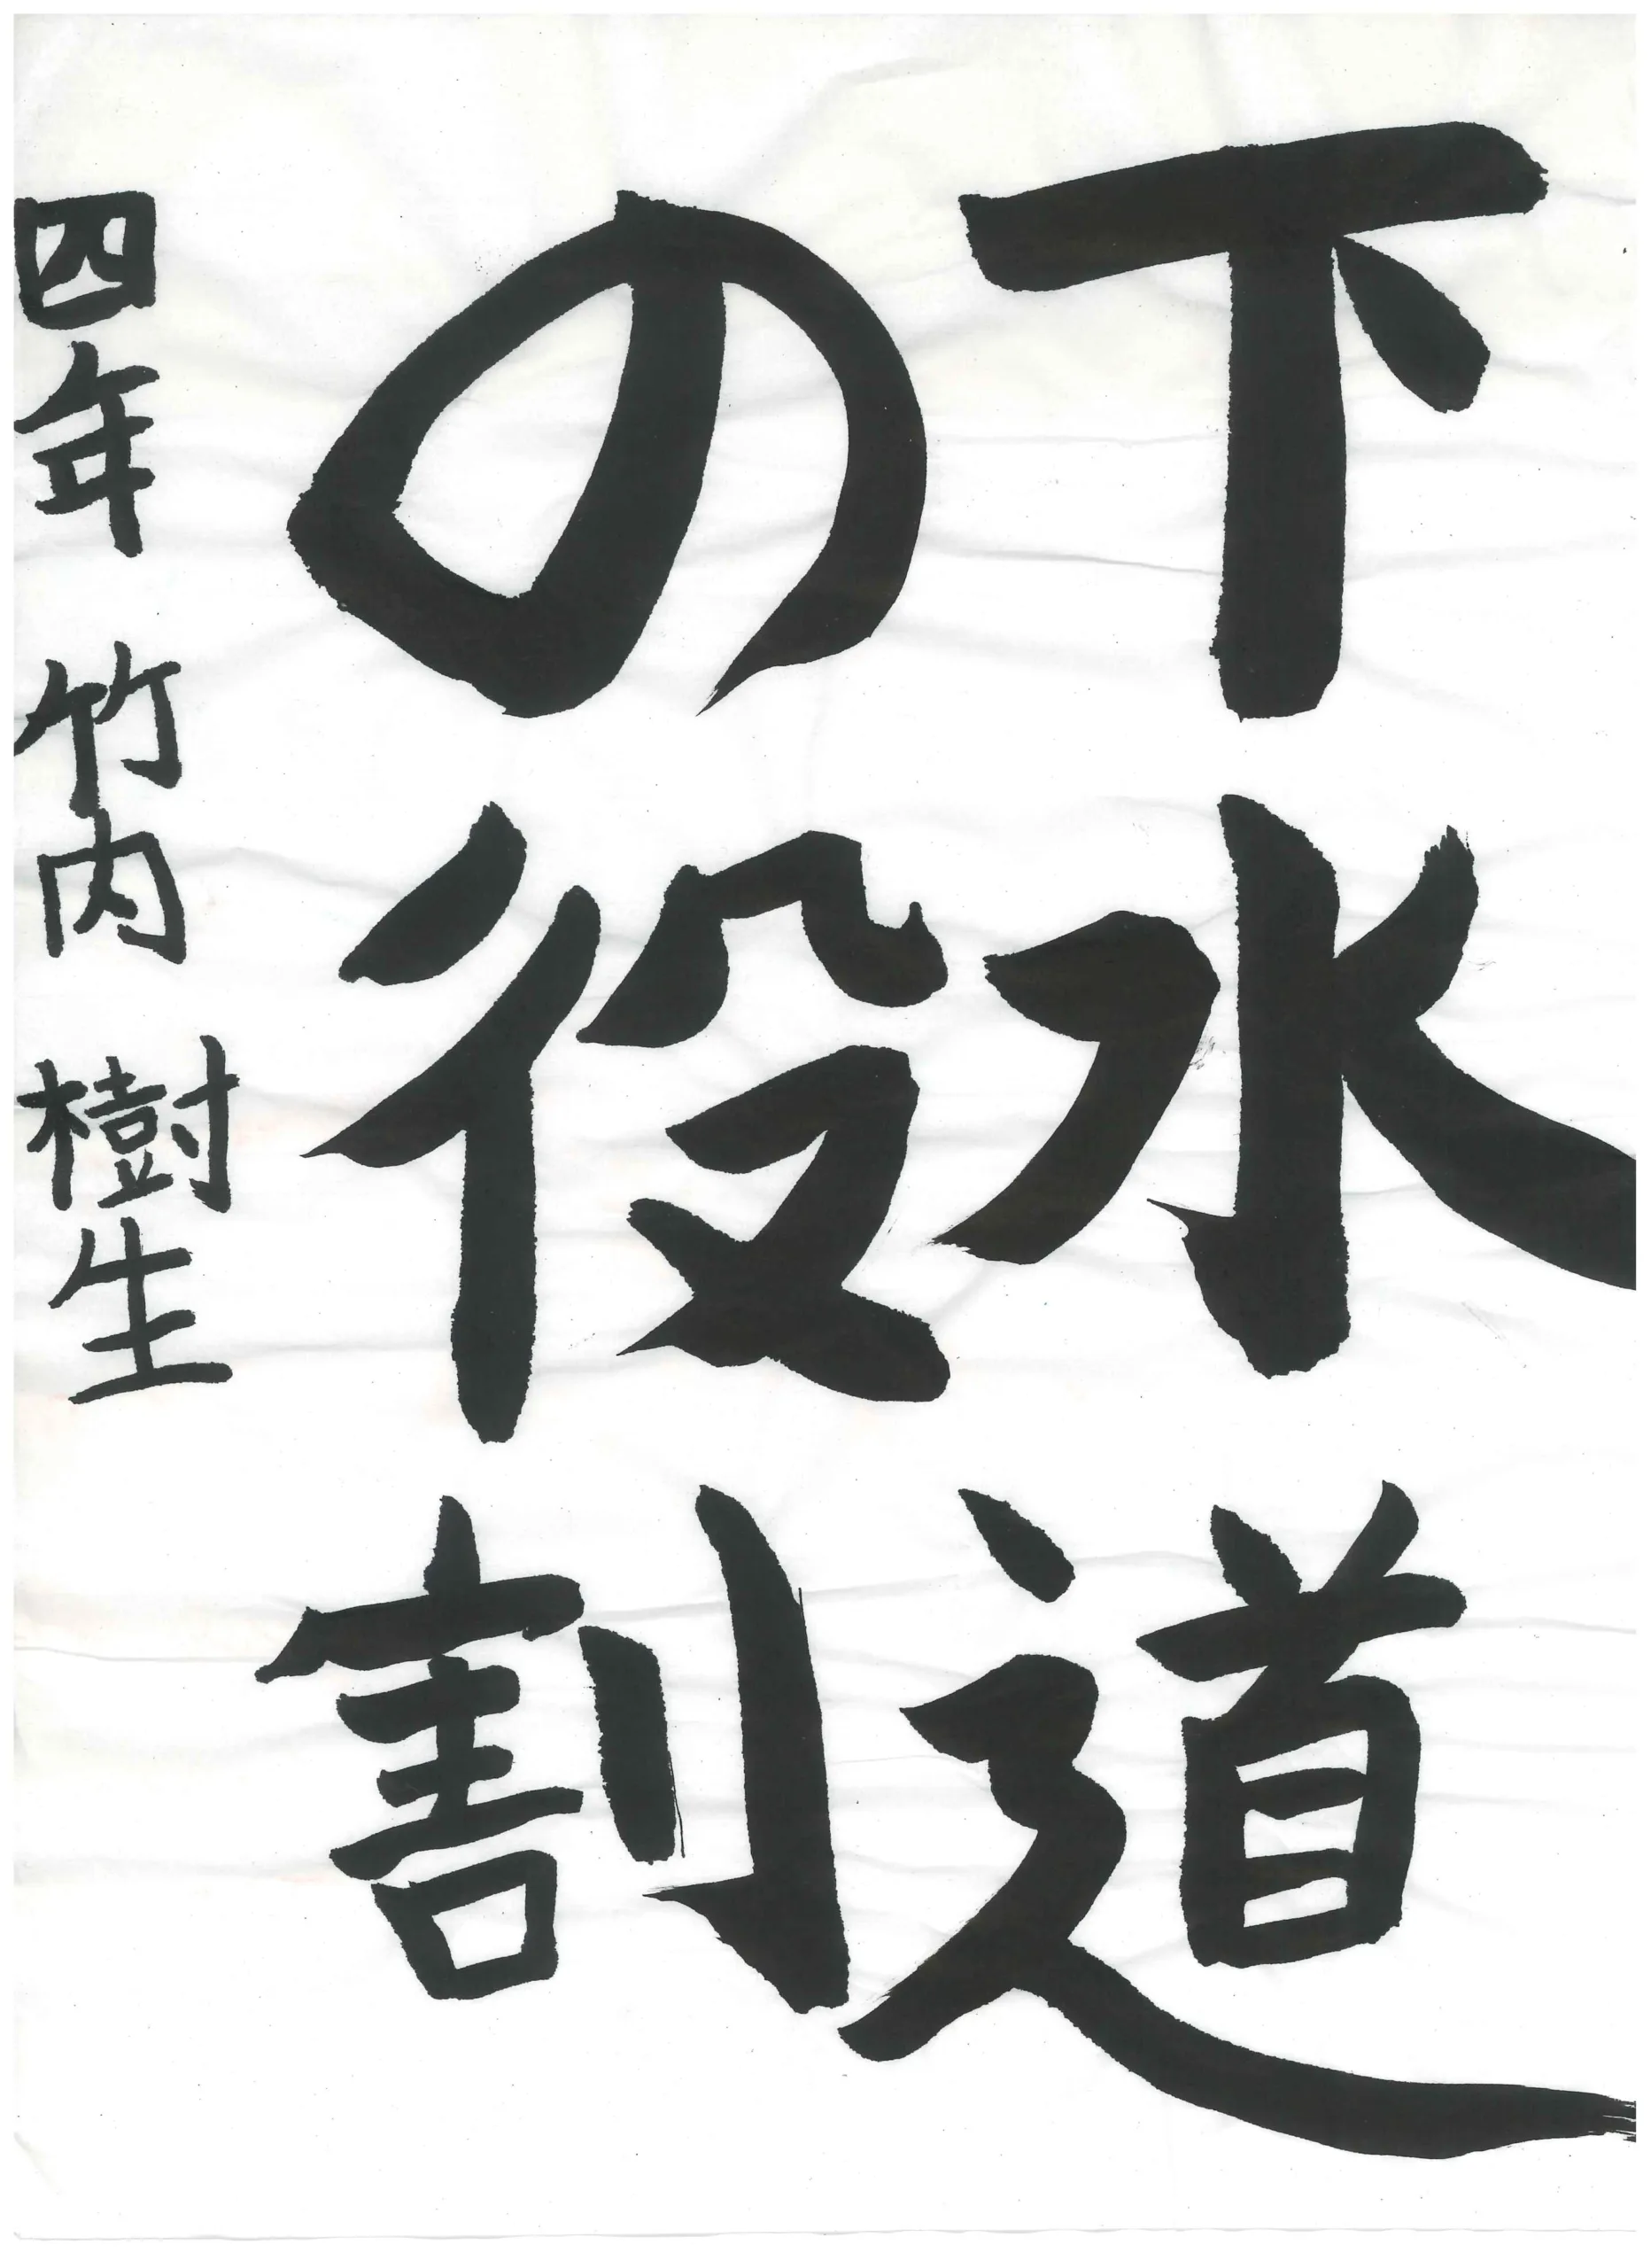 下水道
の役割
四年 竹内 樹生